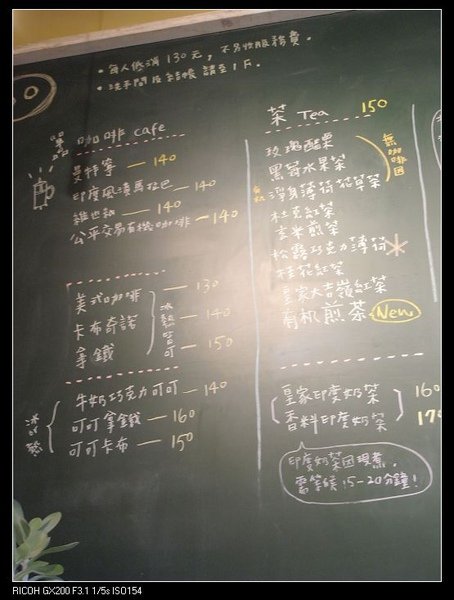 • 每人低消 130 元，不另收服務費。
• 洗手間及結帳 請至 1F.
咖啡 cafe
曼特寧 — 140
印度風漬馬拉巴 — 140
維也納 — 140
公平交易有機咖啡 — 140
美式咖啡 — 130
卡布奇諾 — 140
拿鐵 — 150
冰熱皆可
牛奶巧克力可可 — 140
可可拿鐵 — 160
可可卡布 — 150
冰 or 熱
茶 Tea 150
玫瑰醋栗
黑莓水果茶
有机 淨身薄荷花草茶
無咖啡因
杜克紅茶
玄米煎茶
松露巧克力薄荷
桂花紅茶
皇家大吉嶺紅茶
有机煎茶 New
皇家印度奶茶 160
香料印度奶茶 17
印度奶茶因現煮，
需等候 15-20分鐘!
RICOH GX200 F3.1 1/5s ISO154